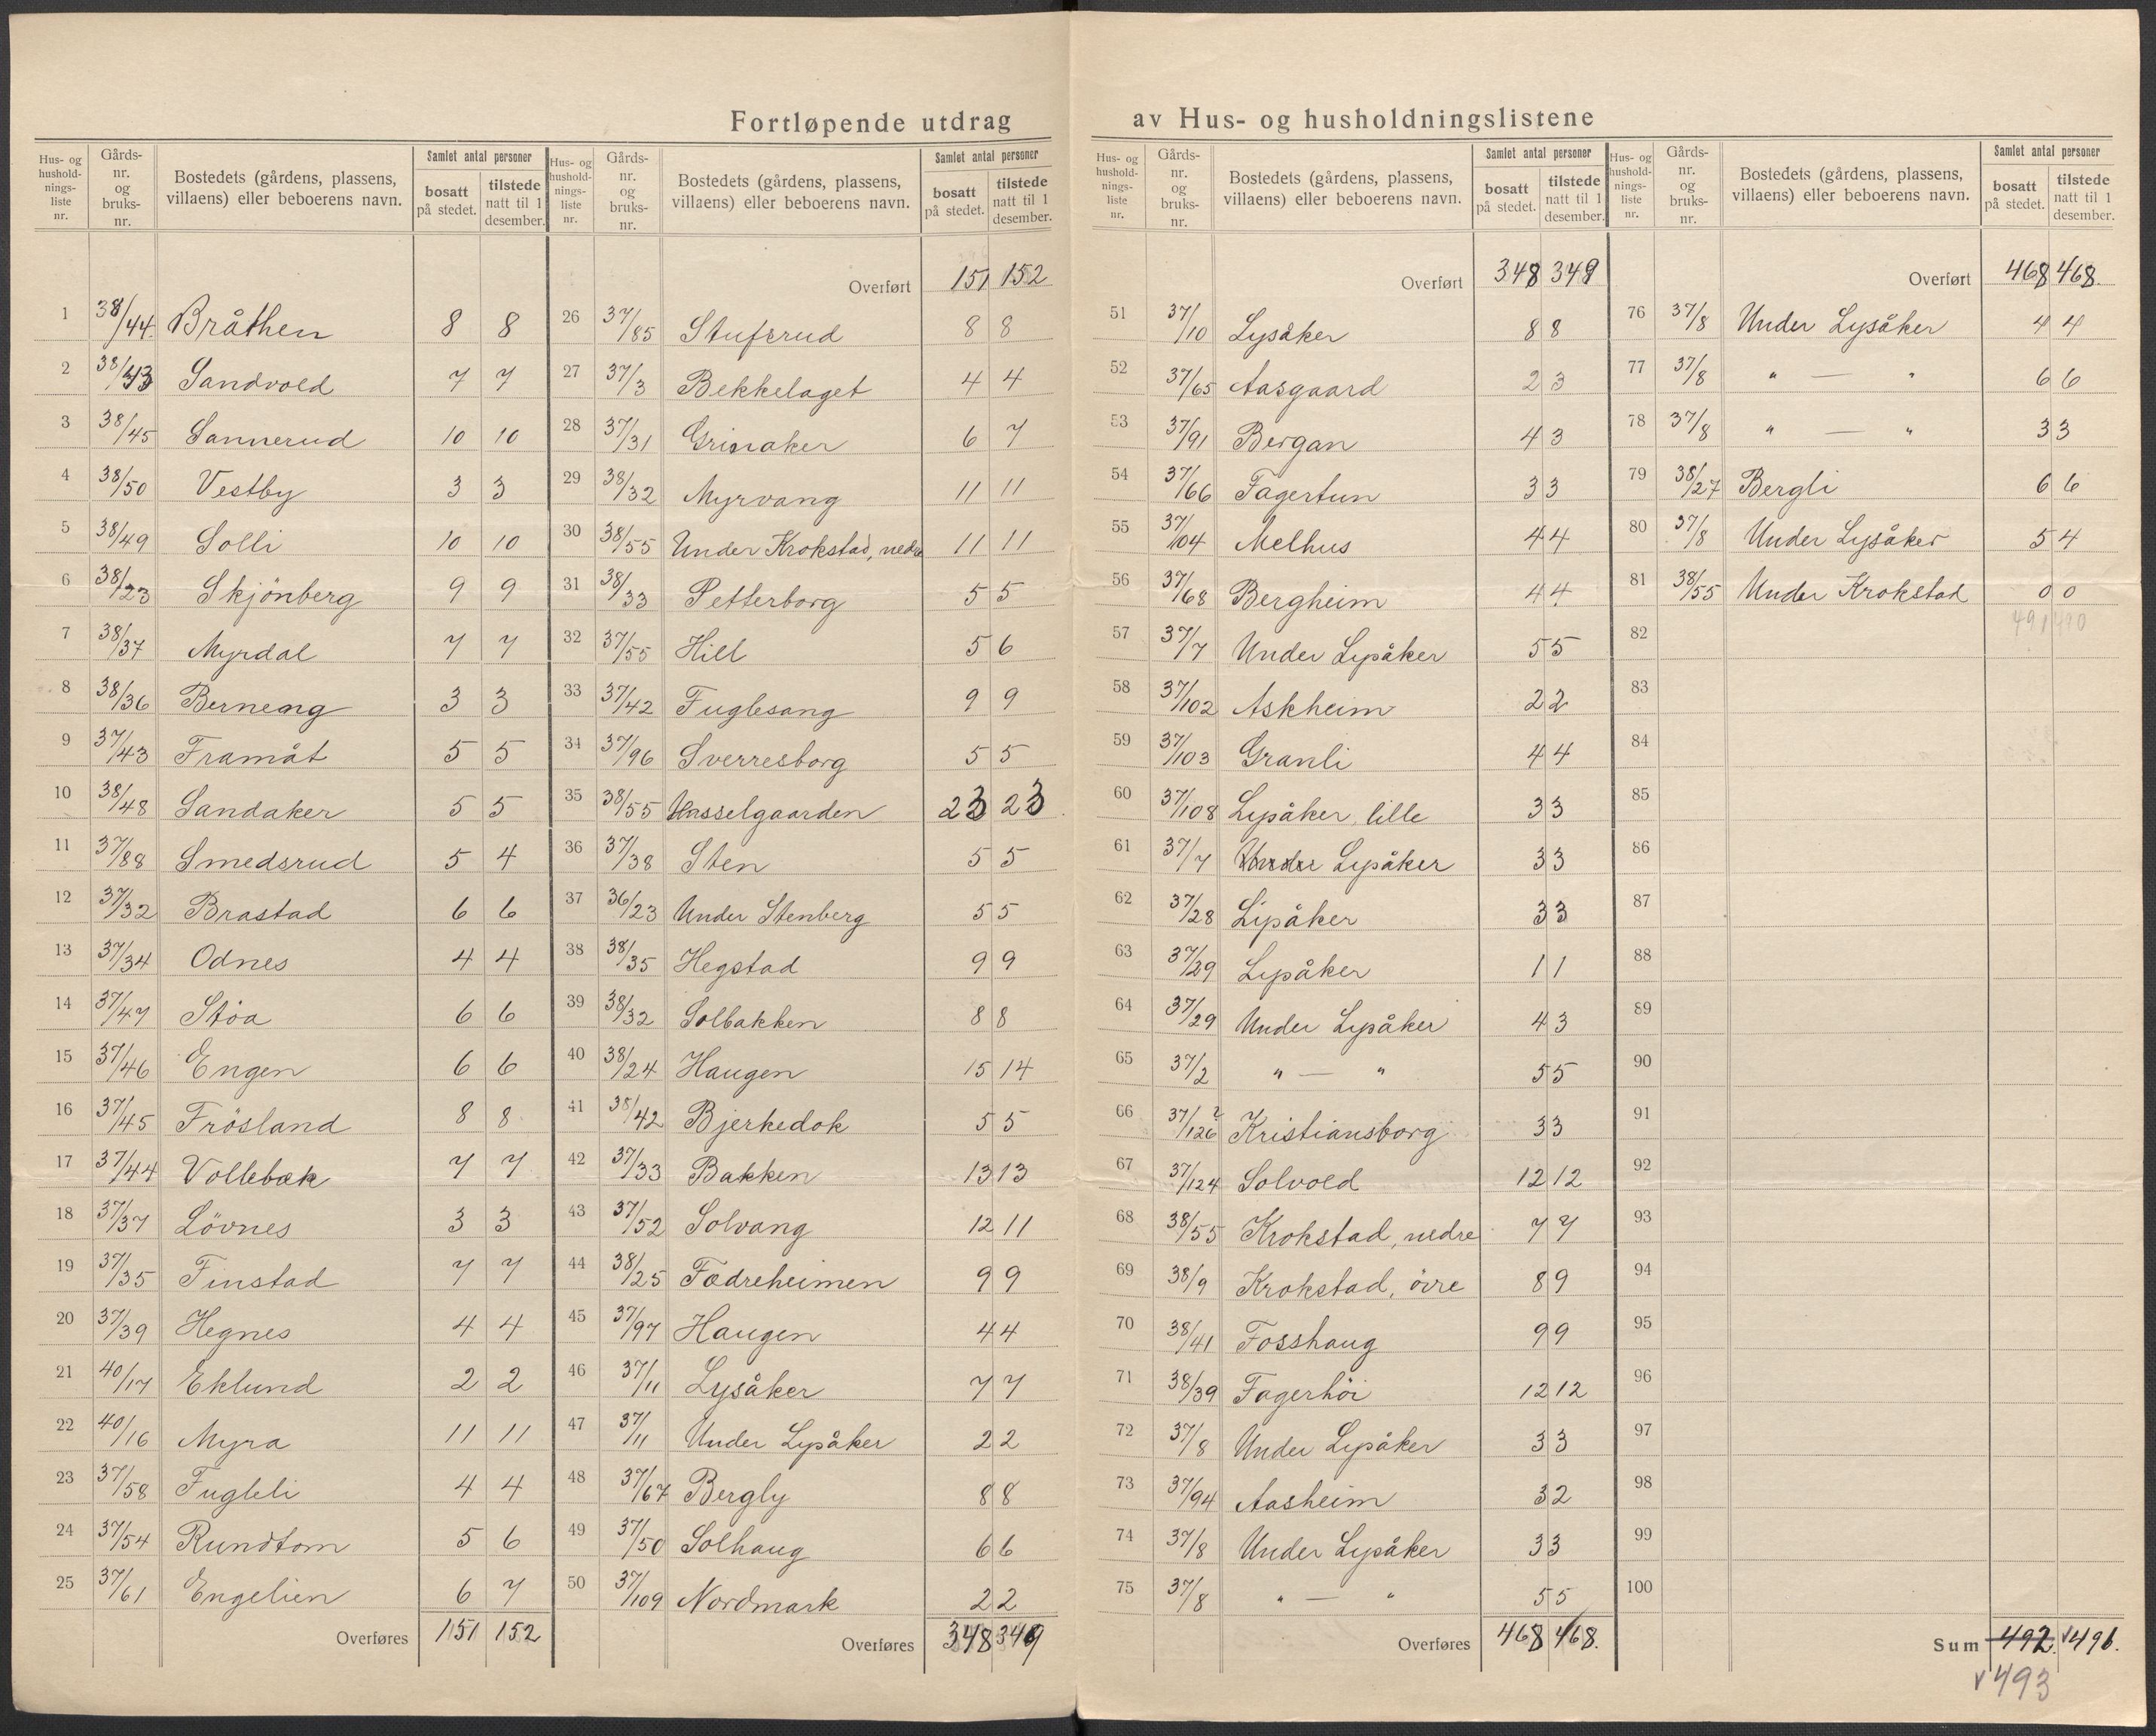 Fortløpende utdrag av Hus- og husholdningslistene
Hus- og hushold-nings-liste nr. | Gårds-nr. og bruks-nr. | Bostedets (gårdens, plassens, villaens) eller beboerens navn. | Samlet antal personer | bosatt på stedet. | tilstede natt til 1 desember.
1 38/44. Bråthen 8 8
2 38/43 Sandvold 7 7
3 38/45 Sannerud 10 10
4 38/50 Vestby 3 3
5 38/49 Solli 10 10
6 38/23 Skjönberg 9 9
7 38/37 Myrdal 7 7
8 38/36 Berneng 3 3
9 37/43 Framåt 5 5
10 38/48 Sandaker 5 5
11 37/88 Smedsrud 5 4
12 37/32 Brastad 6 6
13 37/34 Odnes 4 4
14 37/47 Stöa 6 6
15 37/46 Engen 6 6
16 37/45 Frösland 8 8
17 37/44 Vollebæk 7 7
18 37/37 Lövnes 3 3
19 37/35 Finstad 7 7
20 37/39 Hegnes 4 4
21 40/17 Eklund 2 2
22 40/16 Myra 11 11
23 37/58 Fugleli 4 4
24 37/54 Rundtom 5 6
25 37/61 Engelien 6 7
Overføres 151 152
Hus- og hushold-nings-liste nr. | Gårds-nr. og bruks-nr. | Bostedets (gårdens, plassens, villaens) eller beboerens navn. | Samlet antal personer | bosatt på stedet. | tilstede natt til 1 desember.
Overført 151 152
26 37/85 Stufsrud 8 8
27 37/3 Bekkelaget 4 4
28 37/31 Grinaker 6 7
29 38/32 Myrvang 11 11
30 38/55 Under Krokstad, nedre 11 11
31 38/33 Petterborg 5 5
32 37/55 Hill 5 6
33 37/42 Fuglesang 9 9
34 37/96 Sverresborg 5 5
35 38/55 Hasselgaarden 23 23
36 37/38 Sten 5 5
37 36/23 Under Stenberg 5 5
38 38/35 Hegstad 9 9
39 38/32 Solbakken 8 8
40 38/24 Haugen 15 14
41 38/42 Bjerkedok 5 5
42 37/33 Bakken 13 13
43 37/52 Solvang 12 11
44 38/25 Fædreheimen 9 9
45 37/97 Haugen 4 4
46 37/11 Lysåker 7 7
47 37/11 Under Lysåker 2 2
48 37/67 Bergly 8 8
49 37/50 Solhaug 6 6
50 37/109 Nordmark 2 2
Overføres 348 349
Hus- og hushold-nings-liste nr. | Gårds-nr. og bruks-nr. | Bostedets (gårdens, plassens, villaens) eller beboerens navn. | Samlet antal personer | bosatt på stedet. | tilstede natt til 1 desember.
Overført 348 349
51 37/10 Lysåker 8 8
52 37/65 Aasgaard 2 3
53 37/91 Bergan 4 3
54 37/66 Fagertun 3 3
55 37/104 Melhus 4 4
56 37/68 Bergheim 4 4
57 37/7 Under Lysåker 5 5
58 37/102 Askheim 2 2
59 37/103 Granli 4 4
60 37/108 Lysåker, lille 3 3
61 37/7 Under Lysåker 3 3
62 37/28 Lysåker 3 3
63 37/29 Lysåker 1 1
64 37/29 Under Lysåker 4 3
65 37/2 " — " 5 5
66 37/126 ? Kristiansborg 3 3
67 37/124 Solvold 12 12
68 38/55 Krokstad, nedre 7 7
69 38/9 Krokstad, övre 8 9
70 38/41 Fosshaug 9 9
71 38/39 Fagerhöi 12 12
72 37/8 Under Lysåker 3 3
73 37/94 Aasheim 3 2
74 37/8 Under Lysåker 3 3
75 37/8 " — " 5 5
Overføres 468 468.
Hus- og hushold-nings-liste nr. | Gårds-nr. og bruks-nr. | Bostedets (gårdens, plassens, villaens) eller beboerens navn. | Samlet antal personer | bosatt på stedet. | tilstede natt til 1 desember.
Overført 468 468.
76 37/8 Under Lysåker 4 4
77 37/8 " — " 6 6
78 37/8 " — " 3 3
79 38/27 Bergli 6 6
80 37/8 Under Lysåker 5 4
81 38/55 Under Krokstad 0 0
82 491 490
83
84
85
86
87
88
89
90
91
92
93
94
95
96
97
98
99
100
Sum 492. √491.
√493